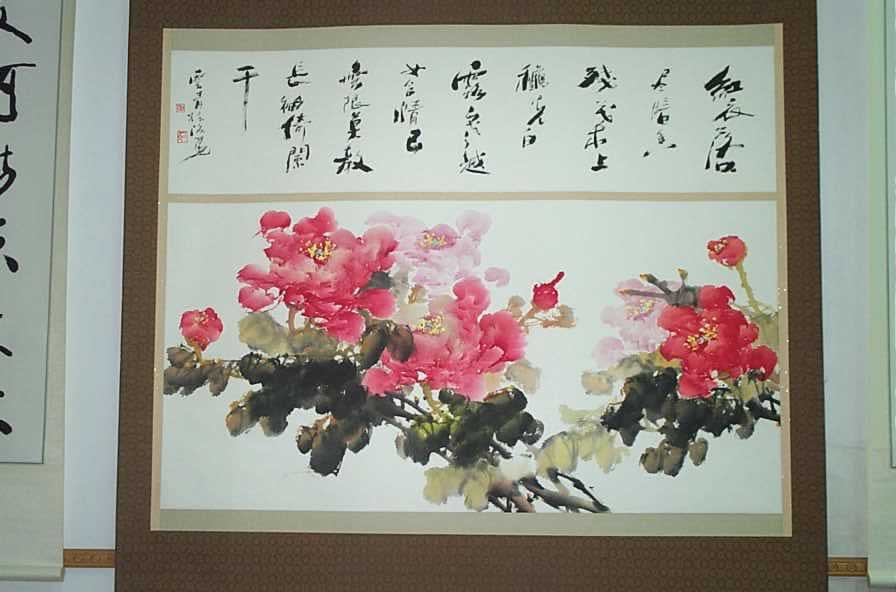 紅衣落
尽暗香
殘葉上
穐光白
露寒越
女含情已
無限莫教
長袖倚闌
干